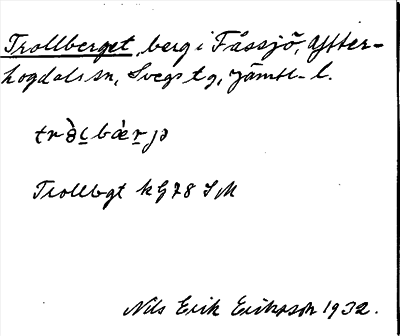 Trollberget, berg i Fåssjö, Ytter-
hogdals sn, Svegs tg, Jämtl. l.
trò̀l̠bæ̀r̠jə
Trollbgt kg 78 SM
Nils Erik Eriksson 1932.